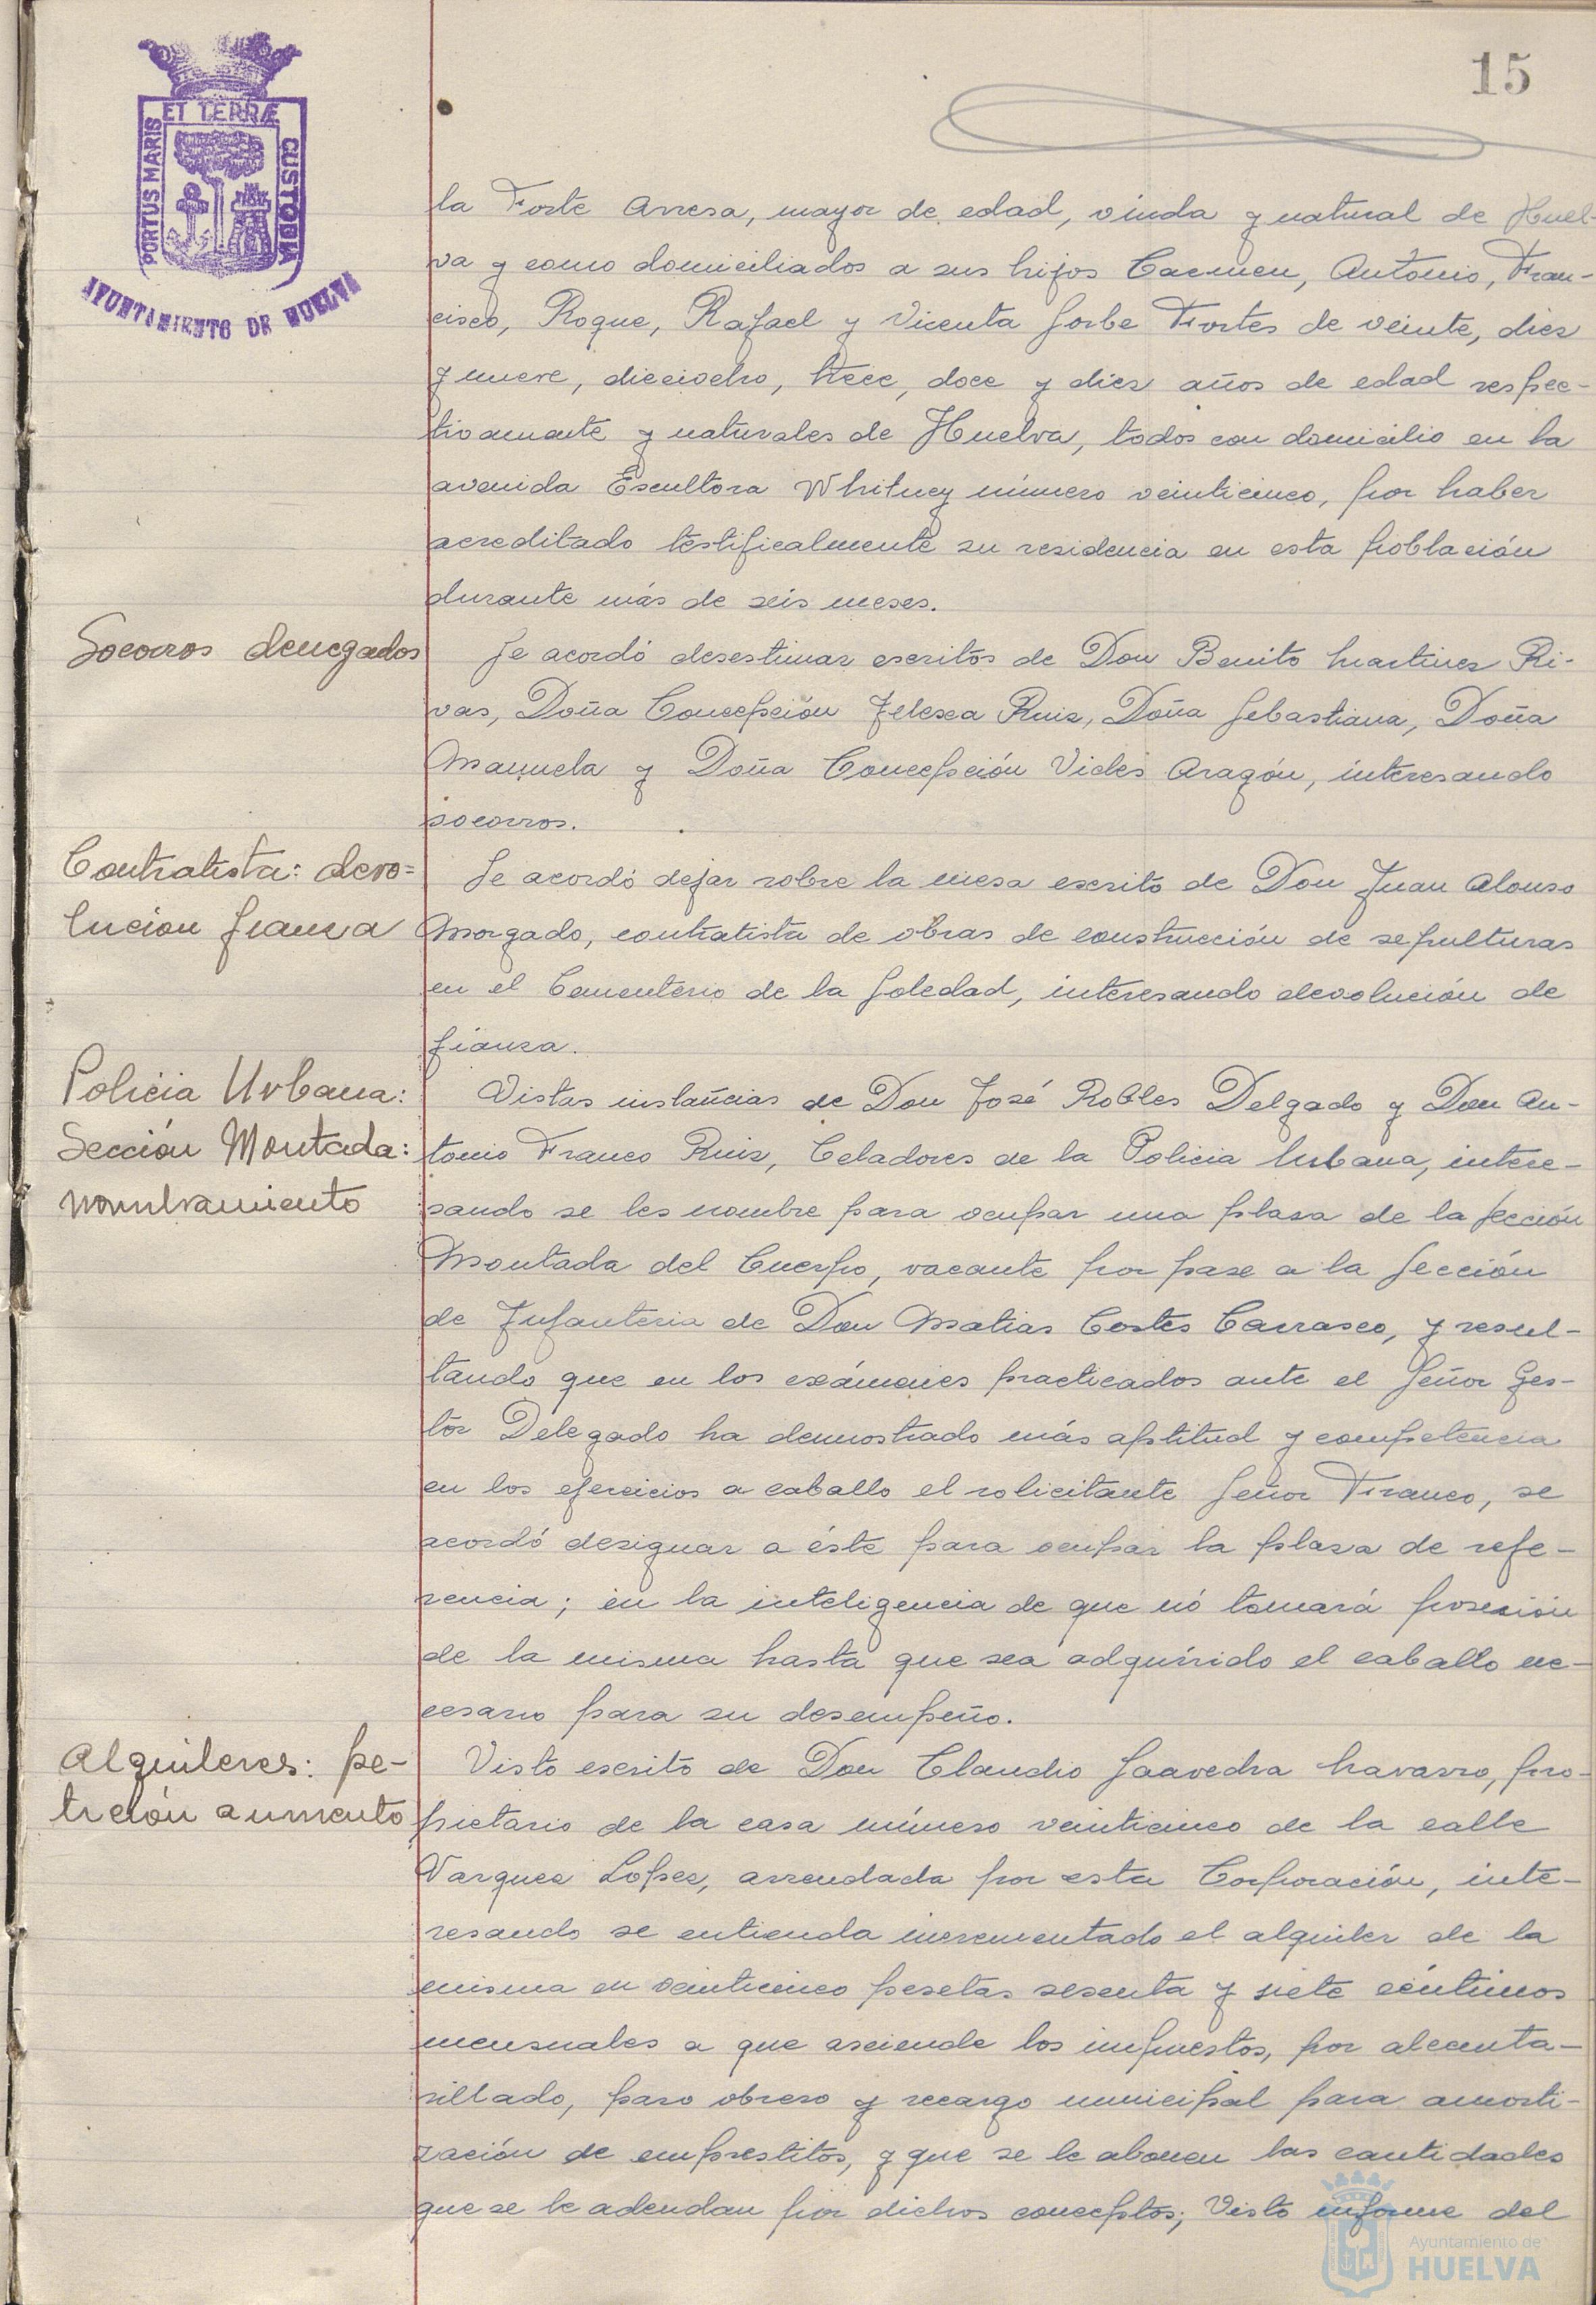 15
ET TERRÆ
PORTUS MARIS
CUSTODIA
AYUNTAMIENTO DE HUELVA
la Forte Arresa, mayor de edad, viuda y natural de Huel-
va y como domiciliados a sus hijos Carmen, Antonio, Fran-
cisco, Roque, Rafael y Vicenta Jorbe Fortes de veinte, diez
y nueve, dieciocho, trece, doce y diez años de edad respec-
tivamente y naturales de Huelva, todos con domicilio en la
avenida Escultora Whitney número veinticinco, por haber
acreditado testificalmente su residencia en esta población
durante más de seis meses.
Socorros denegados
Se acordó desestimar escritos de Don Benito Martinez Ri-
vas, Doña Concepción Ruiz, Doña Sebastiana, Doña
Manuela y Doña Concepción Vides Aragón, interesando
socorros.
Contratista: devo=
lucion fianza
Se acordó dejar sobre la mesa escrito de Don Juan Alonso
Morgado, contratista de obras de construcción de sepulturas
en el Cementerio de la Soledad, interesando devolución de
fianza.
Policia Urbana:
Sección Montada:
nombramiento
Vistas instancias de Don José Robles Delgado y Don An-
tonio Franco Ruiz, Celadores de la Policia Urbana, intere-
sando se les nombre para ocupar una plaza de la Sección
Montada del Cuerpo, vacante por pase a la Sección
de Infanteria de Don Matias Cortés Carrasco, y resul-
tando que en los exámenes practicados ante el Señor Ges-
tor Delegado ha demostrado más aptitud y competencia
en los ejercicios a caballo el solicitante Señor Franco, se
acordó designar a éste para ocupar la plaza de refe-
rencia; en la inteligencia de que nó tomará posesión
de la misma hasta que sea adquirido el caballo ne-
cesario para su desempeño.
Alquileres: pe-
tición aumento
Visto escrito de Don Claudio Saavedra Navarro, pro-
pietario de la casa número veinticinco de la calle
Vazquez Lopez, arrendada por esta Corporación, inte-
resando se entienda incrementado el alquiler de la
misma en veinticinco pesetas sesenta y siete céntimos
mensuales a que asciende los impuestos, por alcanta-
rillado, paro obrero y recargo municipal para amorti-
zación de emprestitos, y que se le abonen las cantidades
que se le adeudan por dichos conceptos; Visto informe del
Ayuntamiento de
HUELVA